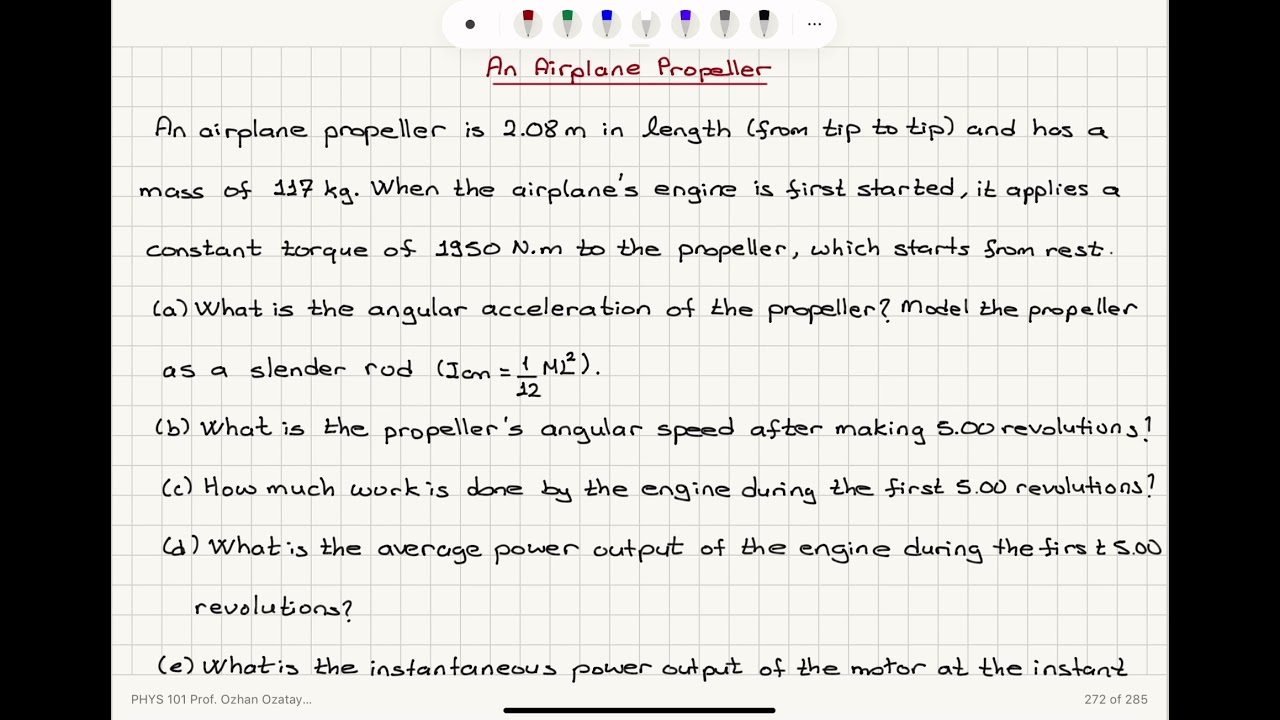 An Airplane Propeller
An airplane propeller is 2.08 m in length (from tip to tip) and has a
mass of 117 kg. When the airplane's engine is first started, it applies a
constant torque of 1950 N.m to the propeller, which starts from rest.
(a) What is the angular acceleration of the propeller? Model the propeller
as a slender rod (Icm = 1/12 ML²).
(b) What is the propeller's angular speed after making 5.00 revolutions?
(c) How much work is done by the engine during the first 5.00 revolutions?
(d) What is the average power output of the engine during the first 5.00
revolutions?
(e) What is the instantaneous power output of the motor at the instant
PHYS 101 Prof. Ozhan Ozatay...
272 of 285